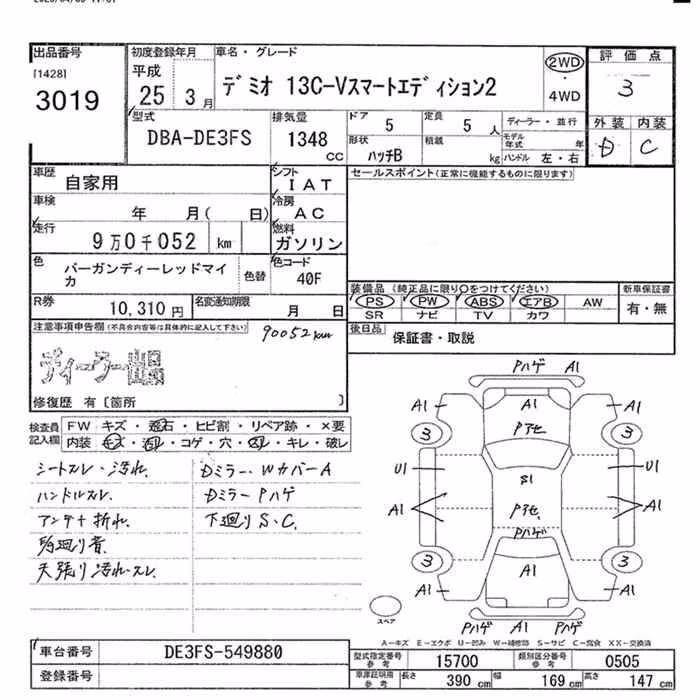 出品番号
[1428]
3019
初度登録年月
平成
25 3月
車名・グレード
デミオ 13C-Vスマートエディション2
2WD
4WD
評価点
3
外装 内装
D C
型式
DBA-DE3FS
排気量
1348
cc
ドア
5
定員
5 人
形状
ハッチB
積載
kg
ディーラー・並行
モデル年式 年
ハンドル 左・右
車歴
自家用
シフト
IAT
車検
年 月( 日)
冷房
AC
走行
9万0千052 km
燃料
ガソリン
色
バーガンディーレッドマイカ
色替
色コード
40F
R券
10,310円
名変通知期限
月 日
セールスポイント(正常に機能するものに限ります)
装備品(純正品に限り○をつけてください)
PS PW ABS エアB AW
SR ナビ TV カワ
新車保証書
有・無
後日品
保証書・取説
注意事項申告欄(不具合内容等は具体的に記入して下さい)
90052km
ディーラー出品
修復歴 有〔箇所 〕
検査員記入欄
FW キズ・飛石・ヒビ割・リペア跡・×要
内装 キズ・汚れ・コゲ・穴・スレ・キレ・破レ
シートスレ・汚れ
ハンドルスレ
アンテナ折れ
天張り汚れ・スレ
Dミラー・WカバーA
DミラーPハゲ
下廻りS、C
Pハゲ A1
A1 A1 A1
3 Pアセ 3
U1 B1 U1
A1 Pアセ A1
Pハゲ
3 A1 3
A1 A1
Pハゲ A1 Pハゲ
スペア
A-キズ E-エクボ U-凹み W-補修跡 S-サビ C-腐食 XX-交換済
車台番号
DE3FS-549880
登録番号
型式指定番号 参考
15700
類別区分番号 参考
0505
車庫証明用 参考
長さ 390 cm
幅 169 cm
高さ 147 cm